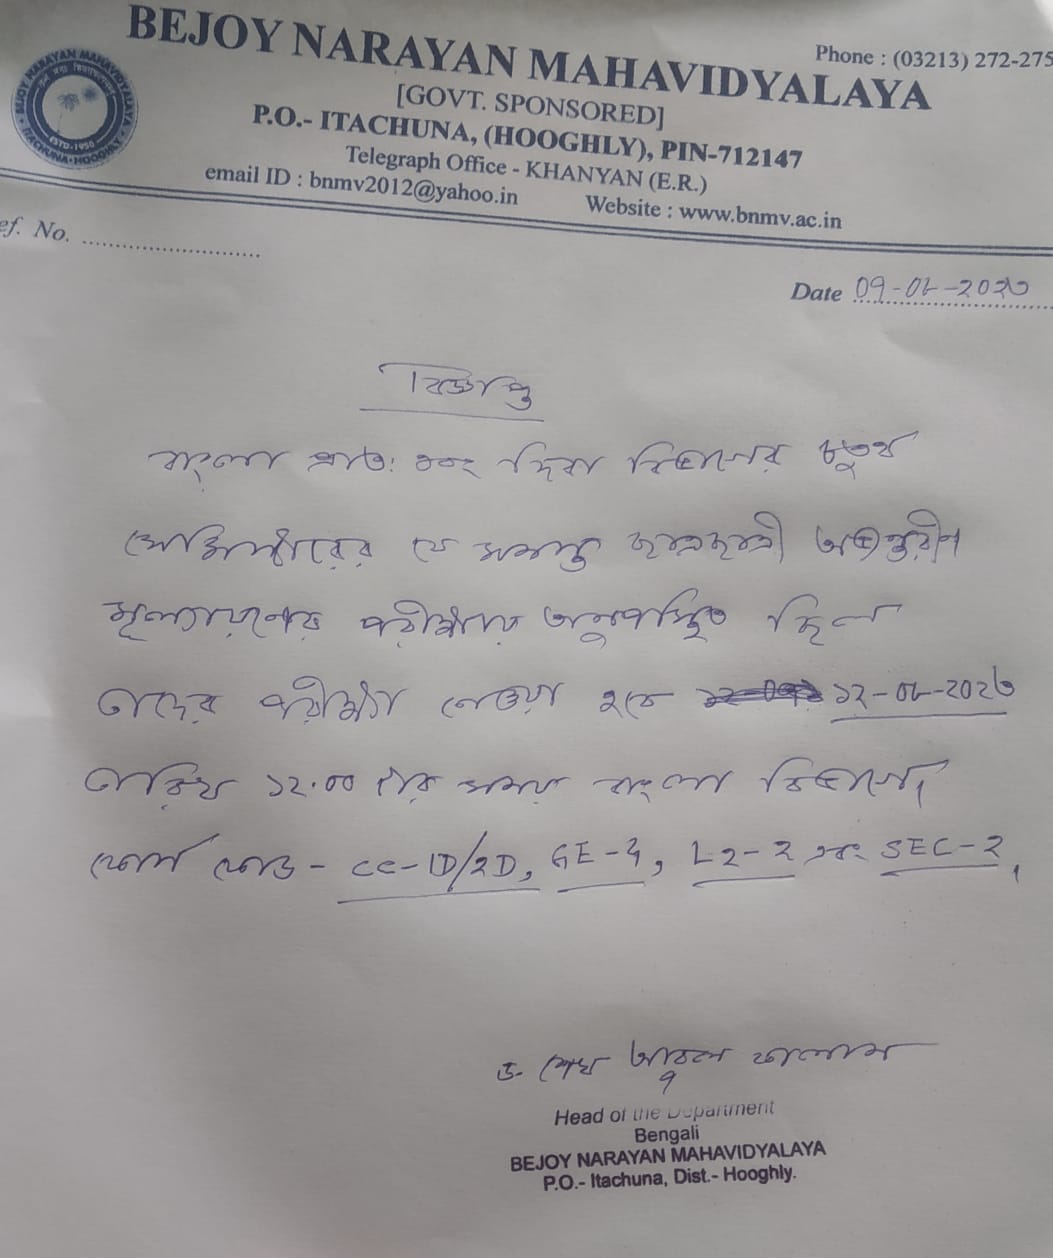 BEJOY NARAYAN MAHAVIDYALAYA
Phone : (03213) 272-275
[GOVT. SPONSORED]
P.O.- ITACHUNA, (HOOGHLY), PIN-712147
Telegraph Office - KHANYAN (E.R.)
email ID : bnmv2012@yahoo.in Website : www.bnmv.ac.in
BEJOY NARAYAN MAHAVIDYALAYA
ESTD-1950
ITACHUNA • HOOGHLY
ef. No.
Date
বিজ্ঞপ্তি
বাংলা প্রাতঃ এবং দিবা বিভাগের চতুর্থ
সেমিস্টারের যে সমস্ত ছাত্রছাত্রী অভ্যন্তরীণ
মূল্যায়নের পরীক্ষায় অনুপস্থিত ছিল
তাদের পরীক্ষা নেওয়া হবে
তারিখ ১২.০০ টার সময় বাংলা বিভাগে।
কোর্স কোড - CC-1D/2D, GE-4, L2-2 এবং SEC-2,
ড. শেখ আবুল কালাম
Head of the Department
Bengali
BEJOY NARAYAN MAHAVIDYALAYA
P.O.- Itachuna, Dist.- Hooghly.